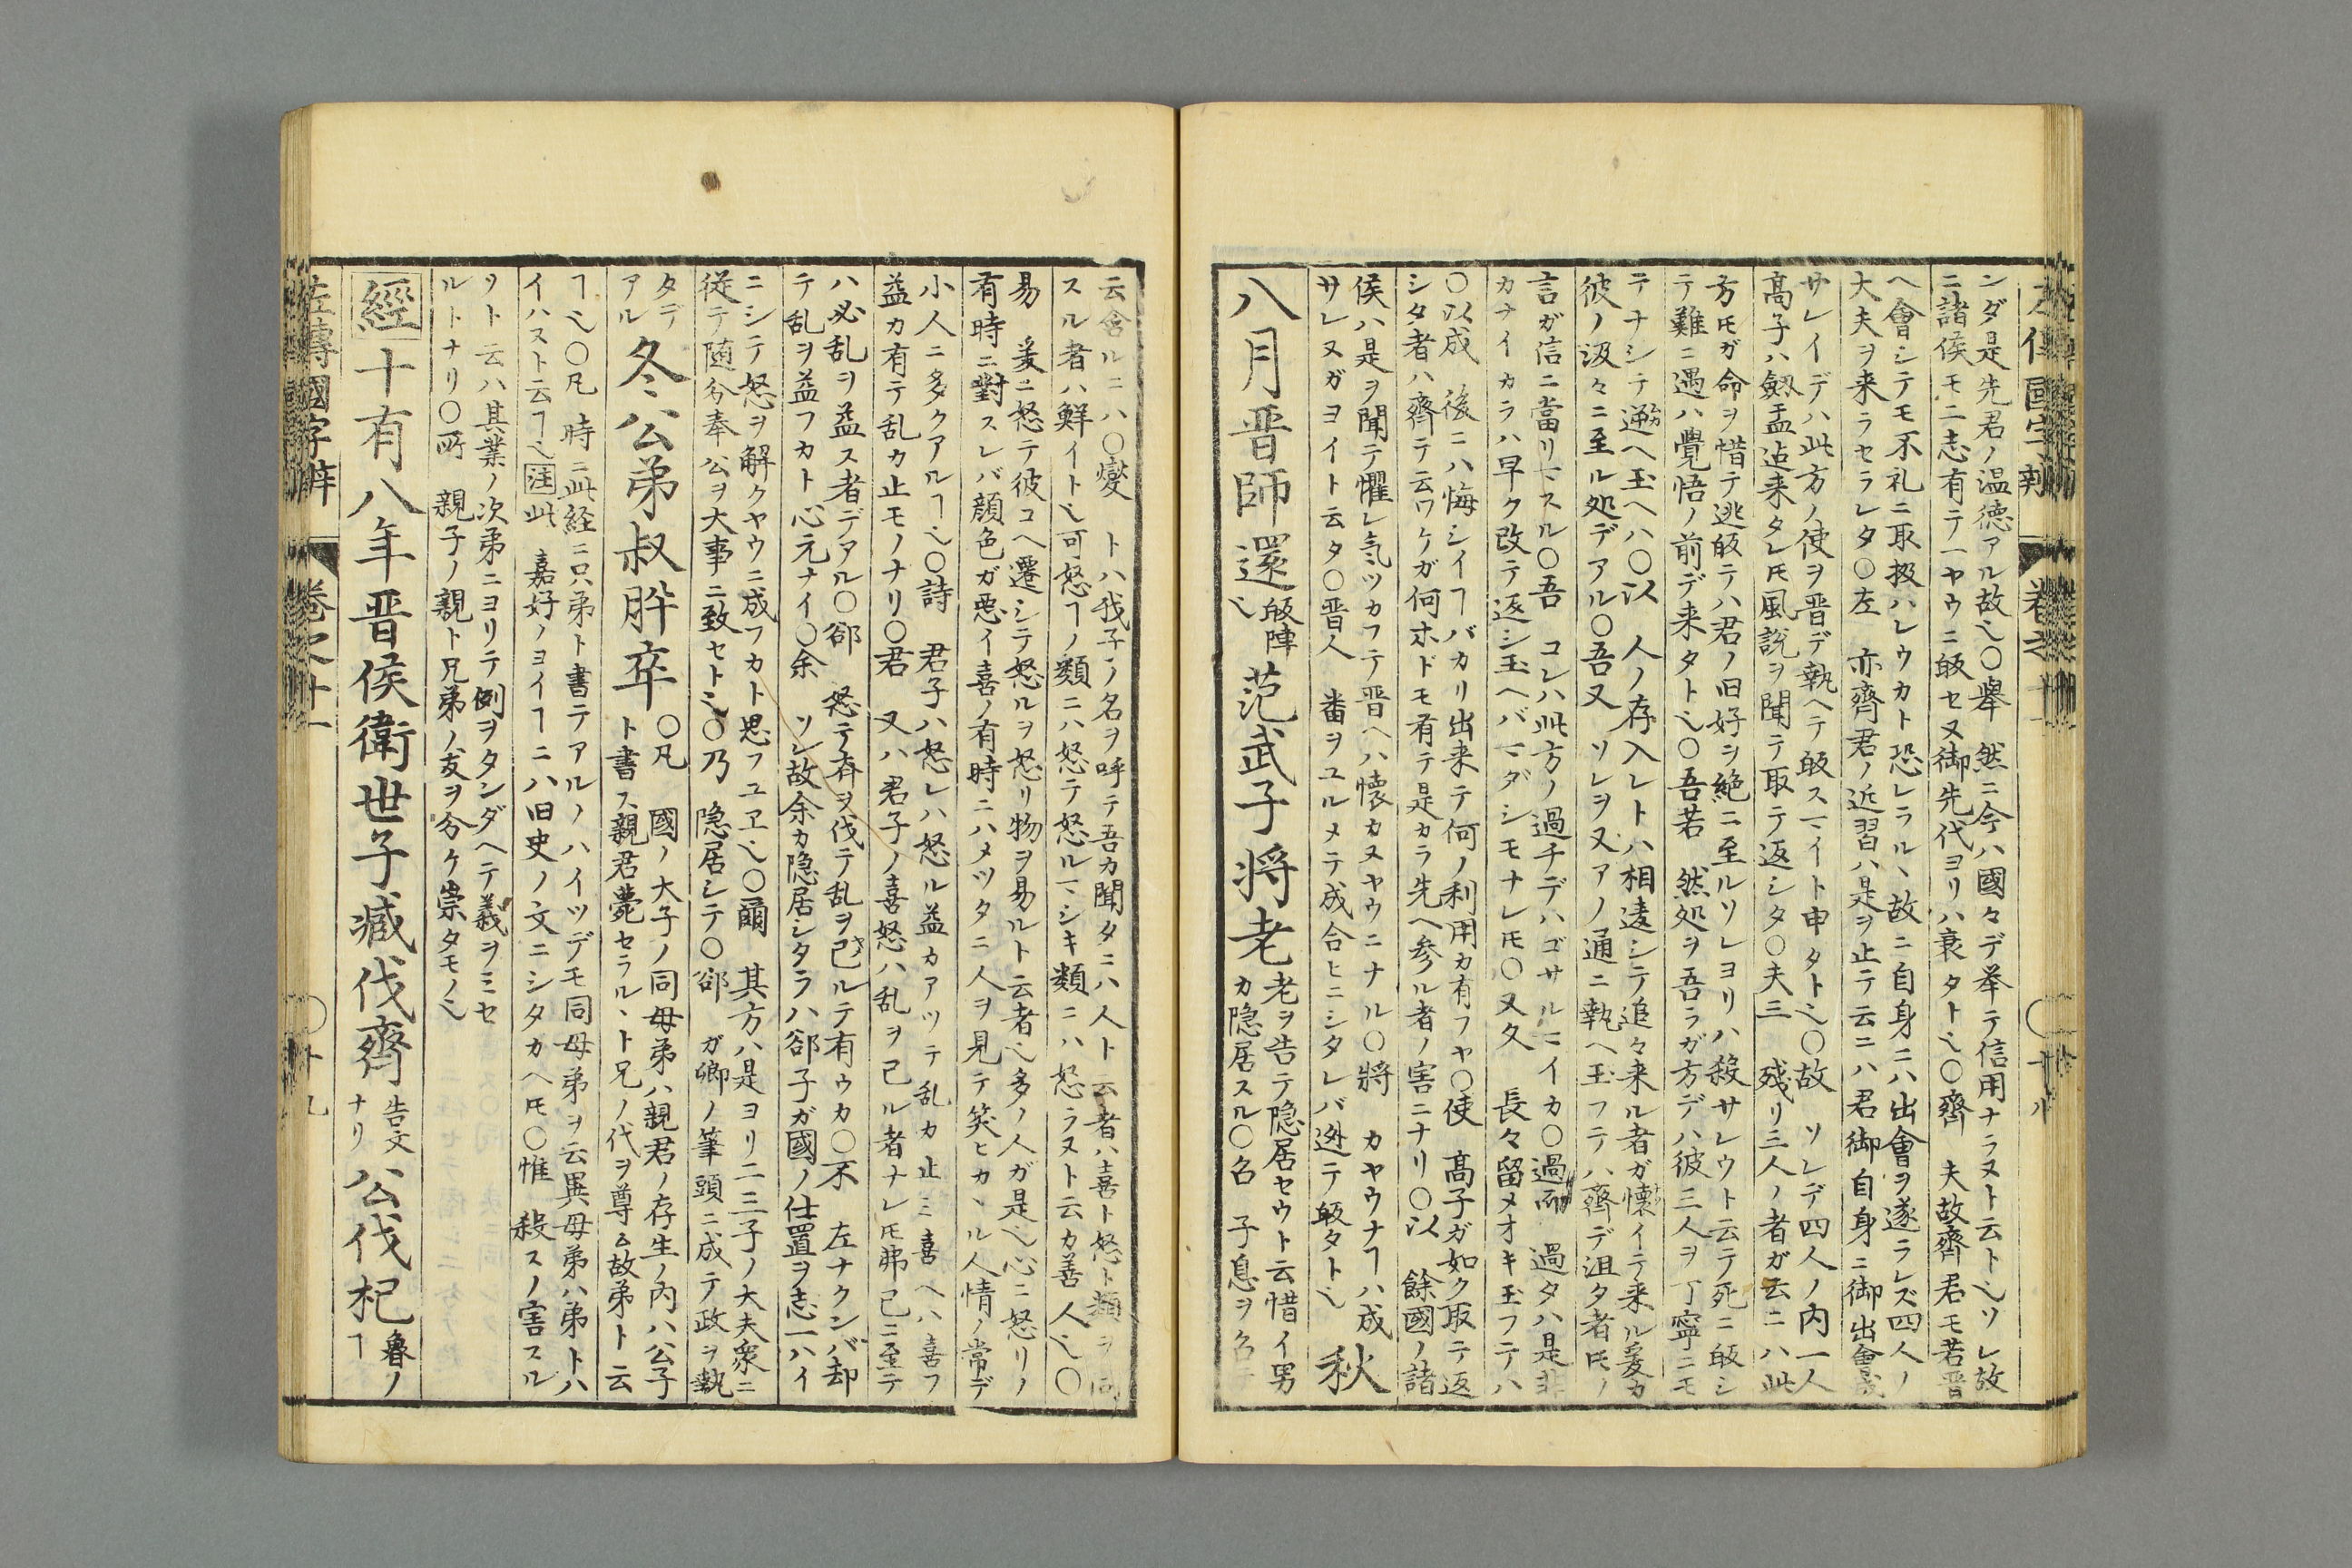 左傳國字辨 卷之十一
ンダ是先君ノ温徳アル故也〇舉 然ニ今ハ國々デ挙テ信用ナラヌト云ト也ソレ故
ニ諸侯モ二志有テ一ヤウニ皈セヌ御先代ヨリハ衰タト也〇齊 夫故齊君モ若晋
ヘ會シテモ不礼ニ取扱ハレウカト恐レラルヽ故ニ自身ニハ出會ヲ遂ラレズ四人ノ
大夫ヲ来ラセラレタ〇左 亦齊君ノ近習ハ是ヲ止テ云ニハ君御自身ニ御出會
サレイデハ此方ノ使ヲ晋デ執ヘテ皈スマイト申タト也〇故 ソレデ四人ノ内一人
高子ハ劔盂迠来タレ𪜈風説ヲ聞テ取テ返シタ〇夫三 残リ三人ノ者ガ云ニハ此
方𪜈ガ命ヲ惜テ逃皈テハ君ノ旧好ヲ絶ニ至ルソレヨリハ殺サレウト云テ死ニ皈シ
テ難ニ遇ハ覺悟ノ前デ来タト也〇吾若 然処ヲ吾ラガ方デハ彼三人ヲ丁寧ニモ
テナシテ迊ヘ玉ヘハ〇以 人ノ存入レトハ相違シテ追々来ル者ガ懐イテ来ル爰カ
彼ノ汲々ニ至ル処デアル〇吾又 ソレヲ又アノ通ニ執ヘ玉フテハ齊デ沮タ者𪜈ノ
言ガ信ニ當リマスル〇吾 コレハ此方ノ過チデハゴサルマイカ〇過而 過タハ是非
カナイカラハ早ク改テ返シ玉ヘバマダシモナレ𪜈〇又久 長々留メオキ玉フテハ
〇以成 後ニハ悔シイヿバカリ出来テ何ノ利用カ有フヤ〇使 高子ガ如ク取テ返
シタ者ハ齊テ云ワケガ何ホドモ有テ是カラ先ヘ参ル者ノ害ニナリ〇以 餘國ノ諸
侯ハ是ヲ聞テ懼レ気ツカフテ晋ヘハ懐カヌヤウニナル〇將 カヤウナヿハ成
サレヌガヨイト云タ〇晋人 番ヲユルメテ成合ヒニシタレバ迯テ皈タト也 秋
八月晋師還 皈陣也 范武子将老 老ヲ告テ隠居セウト云惜イ男
カ隠居スル〇召 子息ヲ召
云會ルニハ〇燮 トハ我子ノ名ヲ呼テ吾カ聞タニハ人ト云者ハ喜ト怒ト類ヲ同
スル者ハ鮮イト也可怒ヿノ類ニハ怒テ怒ルマシキ類ニハ怒ラヌト云カ善人也〇
易 爰ニ怒テ彼コヘ遷シテ怒ルヲ怒リ物ヲ易ルト云者也多ノ人ガ是也心ニ怒リノ
有時ニ對スレバ顔色ガ悪イ喜ノ有時ニハメツタニ人ヲ見テ笑ヒカヽル人情ノ常デ
小人ニ多クアルヿ也〇詩 君子ハ怒レハ怒ル益カアツテ乱カ止ミ喜ヘハ喜フ
益カ有テ乱カ止モノナリ〇君 又ハ君子ノ喜怒ハ乱ヲ已ル者ナレ𪜈弗已ニ至テ
ハ必乱ヲ益ス者デアル〇郤 怒テ齊ヲ伐テ乱ヲ已ルテ有ウカ〇不 左ナクンバ却
テ乱ヲ益フカト心元ナイ〇余 ソレ故余カ隠居シタラハ郤子ガ國ノ仕置ヲ志一ハイ
ニシテ怒ヲ解クヤウニ成フカト思フユヱ也〇爾 其方ハ是ヨリ二三子ノ大夫衆ニ
従テ随分奉公ヲ大事ニ致セト也〇乃 隠居シテ〇郤 ガ卿ノ筆頭ニ成テ政ヲ執
タデアル 冬公弟叔肸卒 〇凡 國ノ大子ノ同母弟ハ親君ノ存生ノ内ハ公子
ト書ス親君薨セラルヽト兄ノ代ヲ尊ム故弟ト云
ヿ也〇凡 時ニ此経ニ只弟ト書テアルノハイツデモ同母弟ヲ云異母弟ハ弟トハ
イハヌト云ヿ也 注 此 嘉好ノヨイヿニハ旧史ノ文ニシタカヘ𪜈〇惟 殺スノ害スル
ヲト云ハ其業ノ次第ニヨリテ例ヲタンダヘテ義ヲミセ
ルトナリ〇所 親子ノ親ト兄弟ノ友ヲ分ケ崇タモノ也
經 十有八年晋侯衛世子臧伐齊 告文ナリ 公伐杞 魯ノヿ
左傳國字辨 卷之十一 〇十九